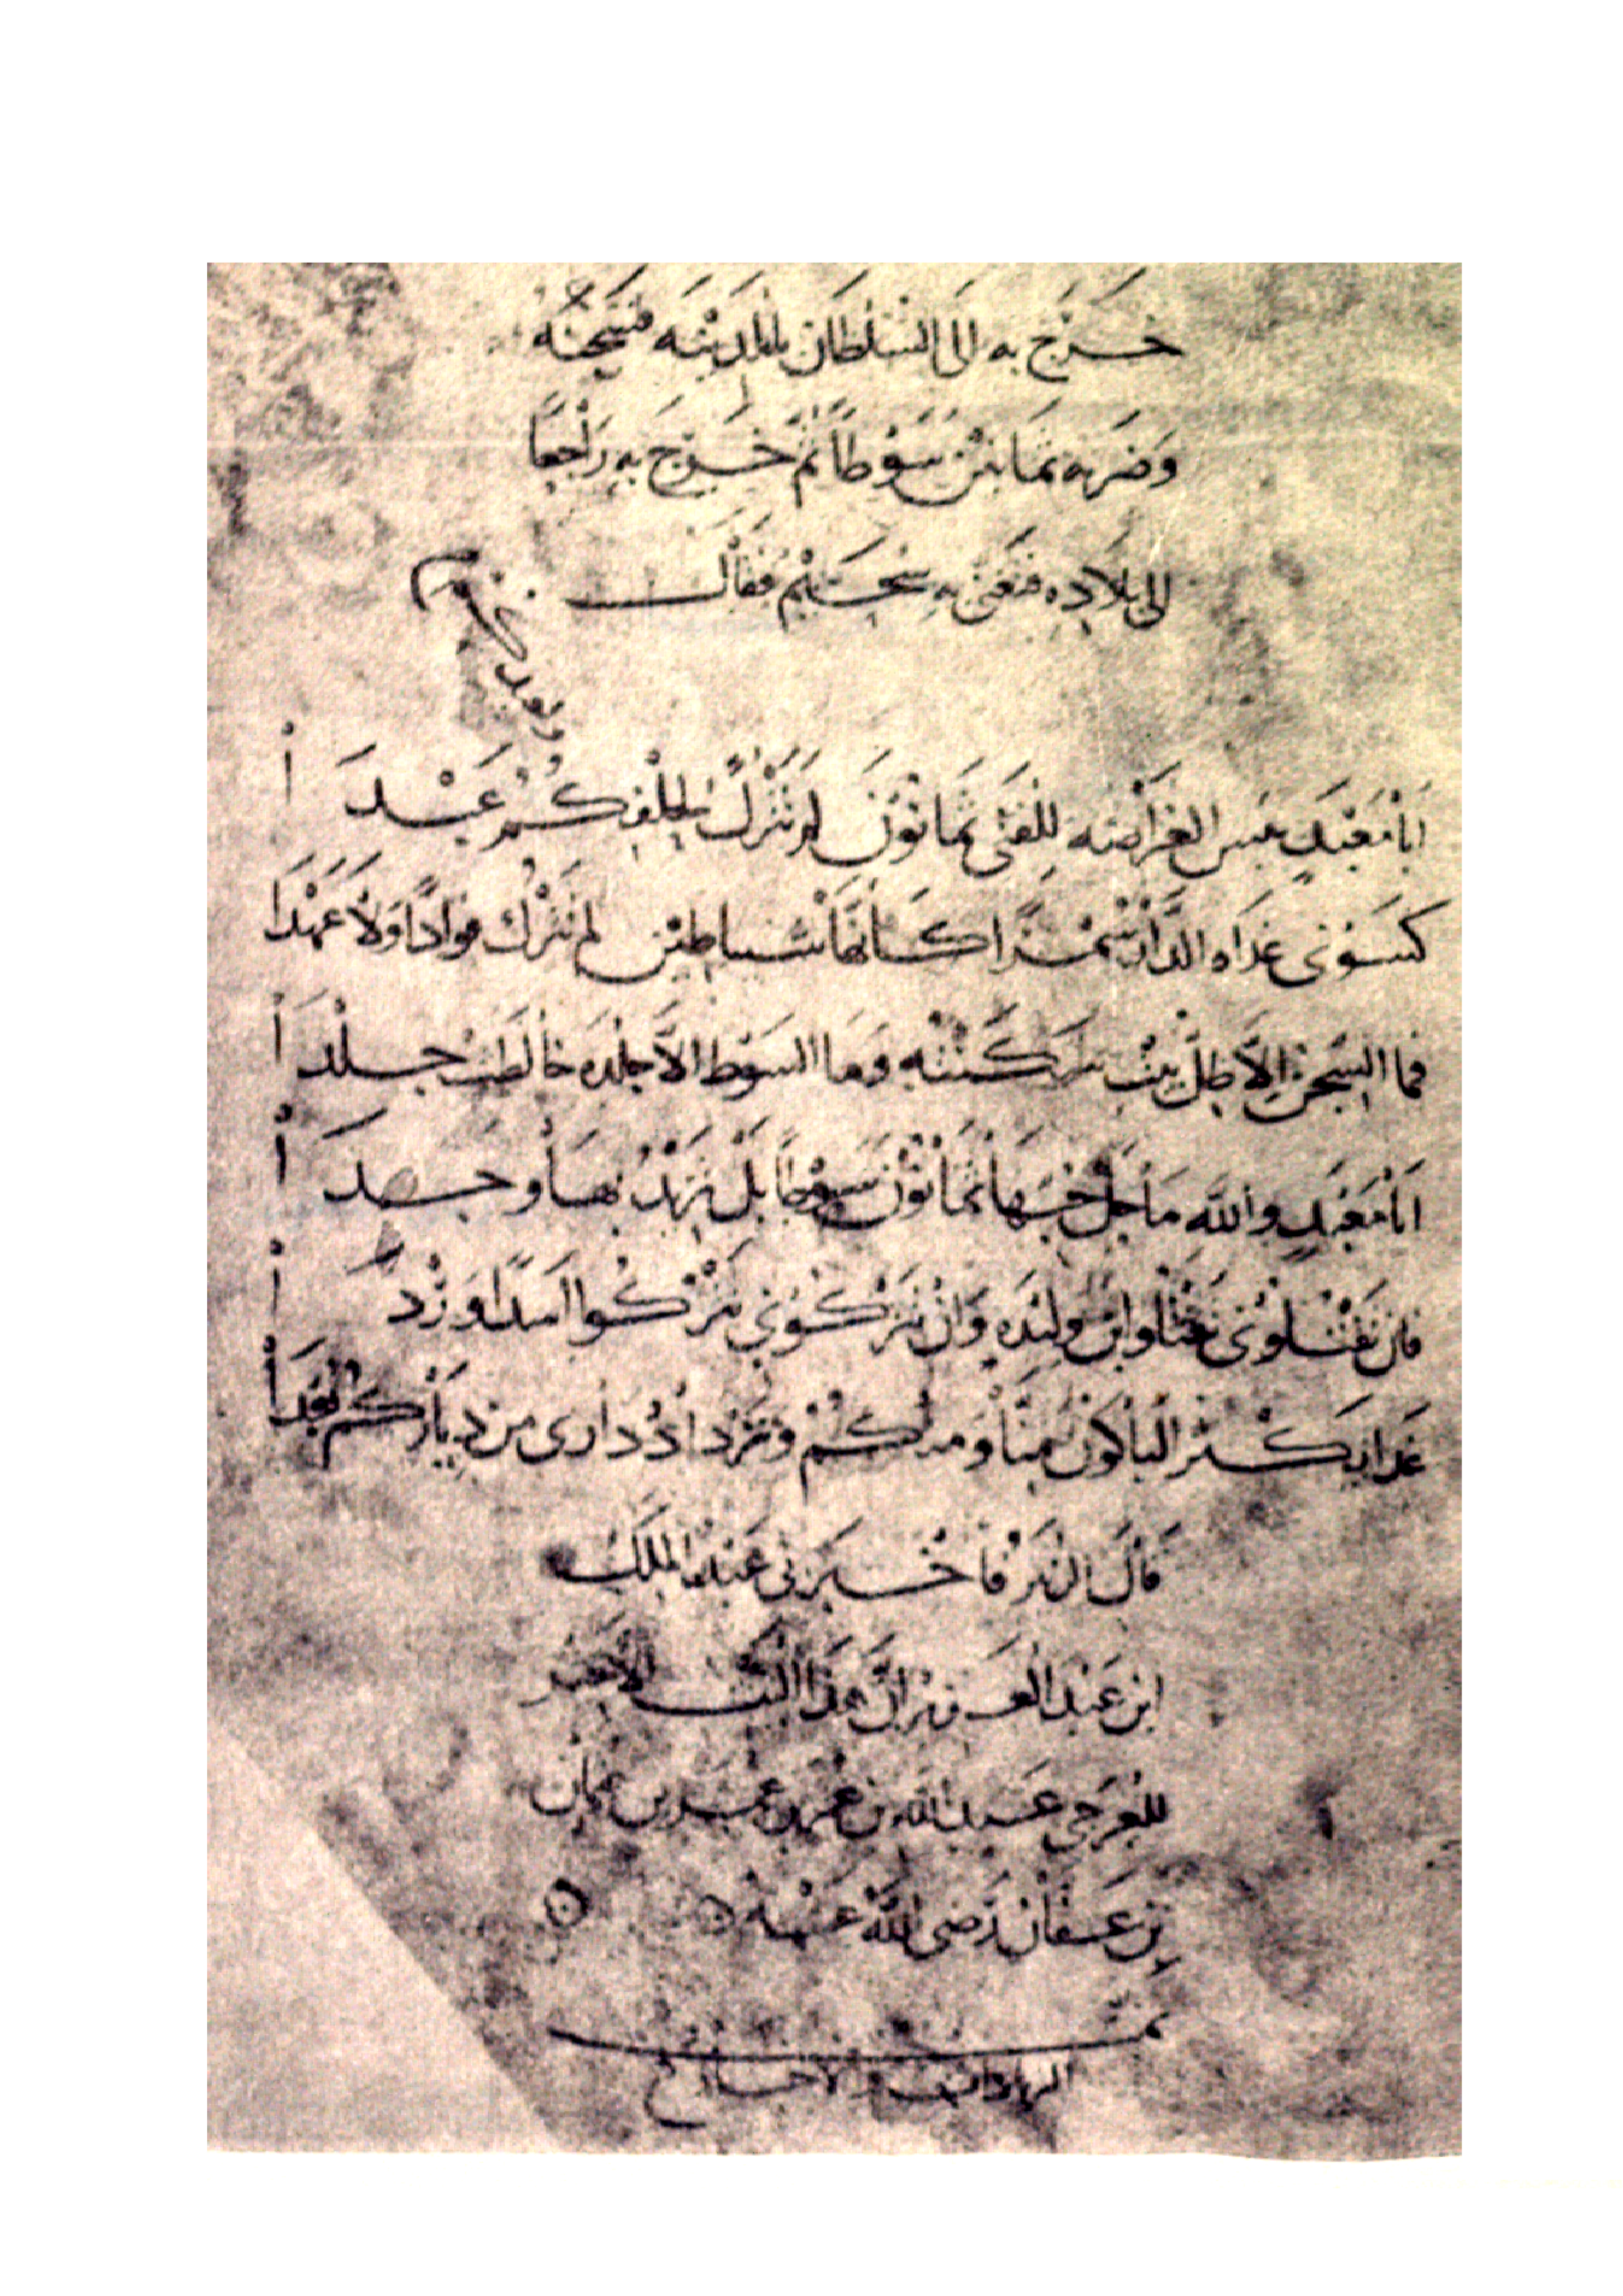 خَرَجَ به إلى السُّلْطَان بالمَدِيْنَه فسَجَنَهُ
وَضَرَبَه ثمَانينْ سَوْطًا ثمَّ خَرَجَ به رَاجعًا
الى بلَادِه فتغنى به سُحَيْم فقَالَ
اَبَا مَعْبَدٍ بئس الفَرَاضَة لِلْفَتَى ثمَانُوْنَ لم تَتْرُكْ لِحِلْفِكُم عَبْدَا
كسَوْنى غدَاه الدَّار سُمْرًا كَأنهَا شياطيْن لم تَتْرُك فوَادًا وَلاَ عَهْدَا
فما السّجن إلاَّ ظلُّ بيْت سَكَنْتُه وَمَا السَّوْط الاَّ جلْدَه خَالَطَتْ جلْدَا
اَبَا مَعْبَدٍ والله مَا حَلَّ حُبّهَا ثمَانُوْن سَوْطًا بَلْ تَزِيْدُ بهَا وجدَا
فان تَقْتُلوْنى تَقْتُلوا ابنَ وَلِيْدَه وَانْ تَتْرُكُوْنى تَتْرُكُوا اَسَدًا وَرْدَا
غدَا يكْثُرُ البَاكُوْن مِنَّا وَمنْكُمْ وَتَزْدَادُ دَارى من دِيَارِكُم بُعْدَا
قَالَ الزُّبَيْر فاخْبَرَنى عَبْدُ المَلك
ابن عَبْد العَزيز انَّ هذَا البَيْت الاخير
للعَرْجي عَبْد الله بن عُمَر بن عَمْرو بن عُثمان
بن عَفَّان رَضى اللهُ عَنْهُ
تمت